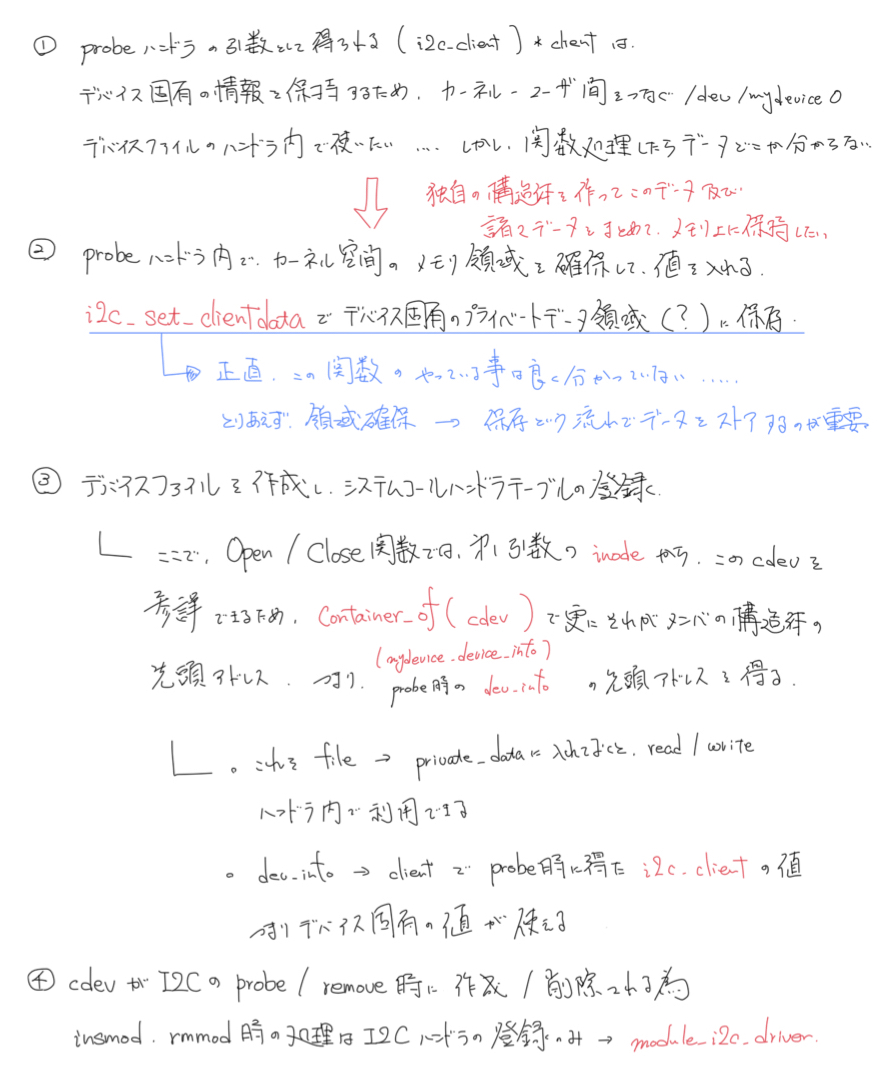 ① probeハンドラの引数として得られる (i2c_client) * client は、
デバイス固有の情報を保持するため、カーネル-ユーザ間をつなぐ /dev/mydevice0
デバイスファイルのハンドラ内で使いたい .... しかし、関数処理したらデータどこか分からない
独自の構造体を作ってこのデータ及び
諸々データをまとめて、メモリ上に保持したい
② probeハンドラ内で、カーネル空間のメモリ領域を確保して、値を入れる.
i2c_set_clientdata で デバイス固有のプライベートデータ領域 (?) に保存.
正直、この関数のやっている事は良く分かっていない .....
とりあえず、領域確保 → 保存という流れでデータをストアするのが重要.
③ デバイスファイルを作成し、システムコールハンドラテーブルの登録.
ここで、Open / Close 関数では、第1引数の inode から、このcdevを
参詳できるため、Container_of ( cdev ) で更にそれがメンバの構造体の
(mydevice_device_info)
先頭アドレス、つまり、probe時の dev_info の先頭アドレスを得る.
。これを file → private_data に入れておくと、read / write
ハンドラ内で利用できる
。dev_info → client で probe時に得た i2c_client の値
つまりデバイス固有の値が使える
④ cdev が I2C の probe / remove 時に 作成 / 削除される為
insmod、rmmod 時の処理は I2C ハンドラの登録のみ → module_i2c_driver.